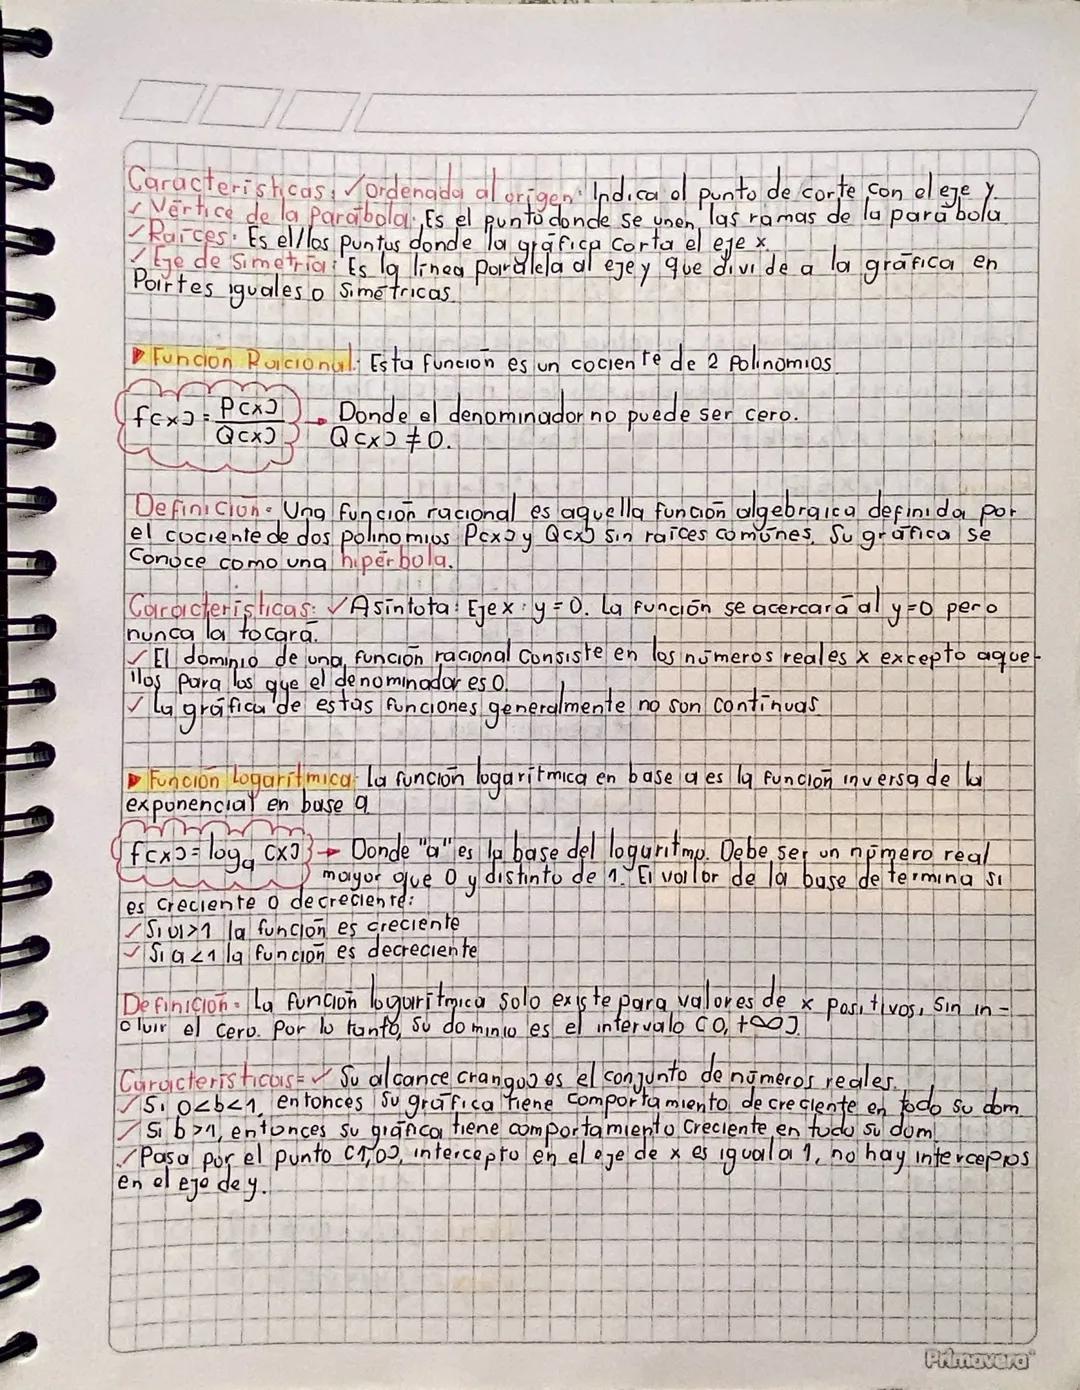 Características: ✓ordenada al origen: Indica el punto de corte con el eje y.
✓Vértice de la parábola: Es el punto donde se unen las ramas de la parábola
✓Raíces: Es el/los puntos donde la gráfica corta el eje x.
✓Eje de simetría: Es la línea paralela al eje y que divide a la gráfica en
Partes iguales o simétricas.
Función Racional: Esta función es un cociente de 2 Polinomios
f(x) = P(x) / Q(x) → Donde el denominador no puede ser cero.
Q(x) ≠ 0.
Definición: Una función racional es aquella función algebraica definida por
el cociente de dos polinomios P(x) y Q(x) sin raíces comunes. Su gráfica se
Conoce como una hipérbola.
Características: ✓Asíntota: Eje x: y = 0. La función se acercará al y=0 pero
nunca la tocará.
✓El dominio de una función racional consiste en los números reales x excepto aque-
llos para los que el denominador es 0.
✓La gráfica de estas funciones generalmente no son continuas
Función Logarítmica: La función logarítmica en base a es la función inversa de la
exponencial en base a
f(x) = log_a (x) → Donde "a" es la base del logaritmo. Debe ser un número real
mayor que 0 y distinto de 1. El valor de la base determina si
es creciente o decreciente:
✓Si a>1 la función es creciente
✓Si a<1 la función es decreciente
Definición: La función logarítmica solo existe para valores de x positivos, sin in-
cluir el cero. Por lo tanto, su dominio es el intervalo (0, +∞).
Características= ✓Su alcance (rango) es el conjunto de números reales.
✓Si 0<b<1, entonces su gráfica tiene comportamiento decreciente en todo su dom
✓Si b>1, entonces su gráfica tiene comportamiento creciente en todo su dom
✓Pasa por el punto (1,0), intercepto en el eje de x es igual a 1, no hay interceptos
en el eje de y.
Primavera